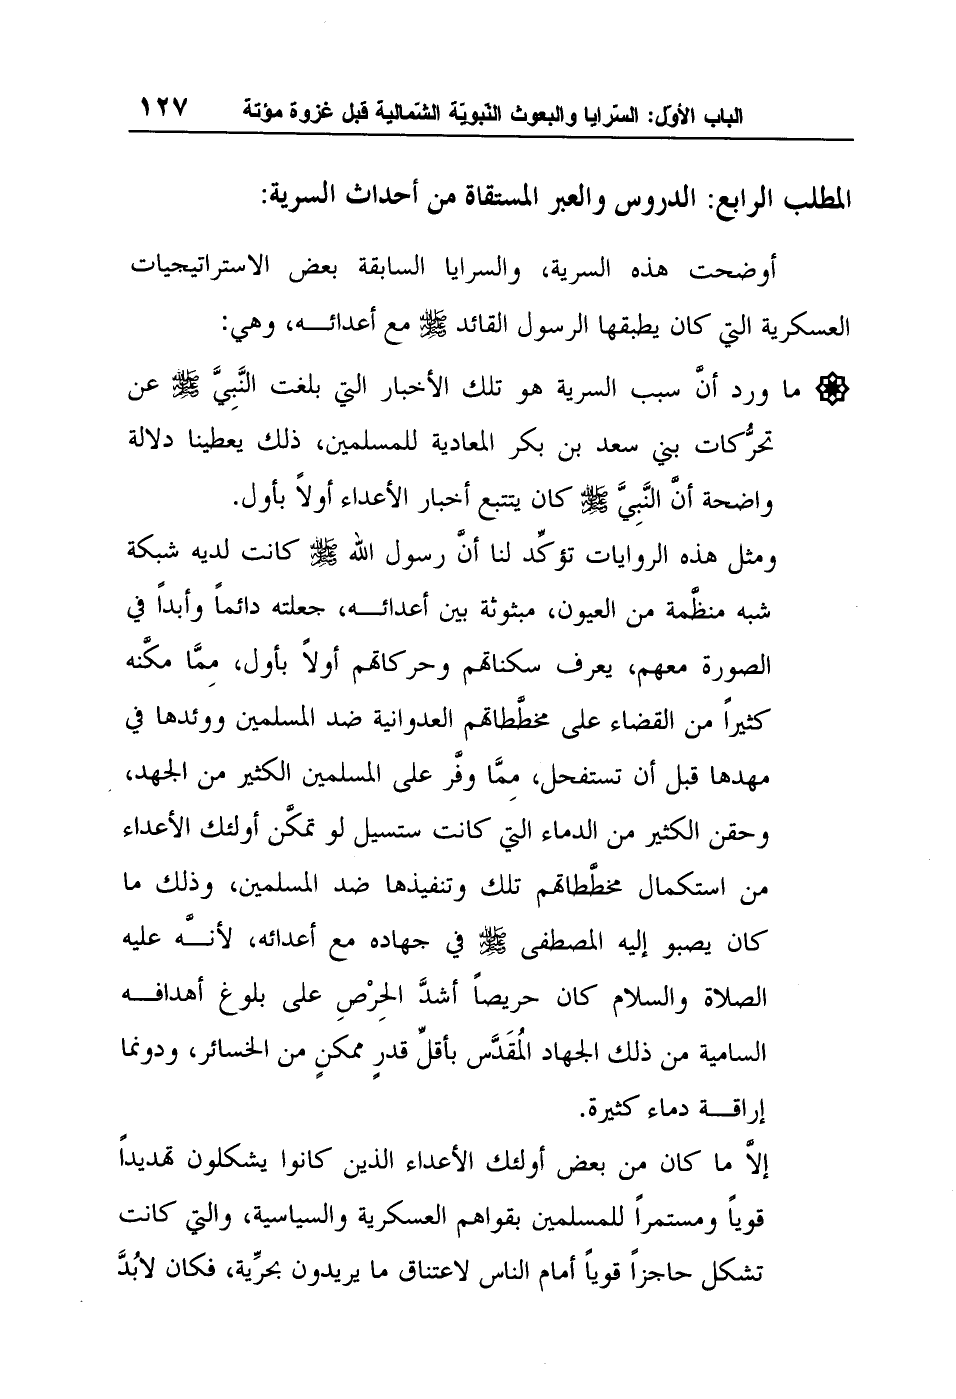 الباب الأوّل: السّرايا والبعوث النّبويّة الشّمالية قبل غزوة مؤتة ١٢٧
المطلب الرابع: الدروس والعبر المستقاة من أحداث السرية:
أوضحت هذه السرية، والسرايا السابقة بعض الاستراتيجيات
العسكرية التي كان يطبقها الرسول القائد ﷺ مع أعدائــه، وهي:
۞ ما ورد أنَّ سبب السرية هو تلك الأخبار التي بلغت النَّبِيَّ ﷺ عن
تحرُّكات بني سعد بن بكر المعادية للمسلمين، ذلك يعطينا دلالة
واضحة أنَّ النَّبِيَّ ﷺ كان يتتبع أخبار الأعداء أولاً بأول.
ومثل هذه الروايات تؤكِّد لنا أنَّ رسول الله ﷺ كانت لديه شبكة
شبه منظَّمة من العيون، مبثوثة بين أعدائــه، جعلته دائماً وأبداً في
الصورة معهم، يعرف سكناتهم وحركاتهم أولاً بأول، مِمَّا مكَّنه
كثيراً من القضاء على مخطَّطاتهم العدوانية ضد المسلمين ووئدها في
مهدها قبل أن تستفحل، مِمَّا وفَّر على المسلمين الكثير من الجهد،
وحقن الكثير من الدماء التي كانت ستسيل لو تمكَّن أولئك الأعداء
من استكمال مخطَّطاتهم تلك وتنفيذها ضد المسلمين، وذلك ما
كان يصبو إليه المصطفى ﷺ في جهاده مع أعدائه، لأنــَّه عليه
الصلاة والسلام كان حريصاً أشدَّ الحِرْصِ على بلوغ أهدافــه
السامية من ذلك الجهاد المُقَدَّس بأقلِّ قدرٍ ممكنٍ من الخسائر، ودونما
إراقــة دماء كثيرة.
إلاَّ ما كان من بعض أولئك الأعداء الذين كانوا يشكلون تهديداً
قوياً ومستمراً للمسلمين بقواهم العسكرية والسياسية، والتي كانت
تشكل حاجزاً قوياً أمام الناس لاعتناق ما يريدون بحرِّية، فكان لابُدَّ